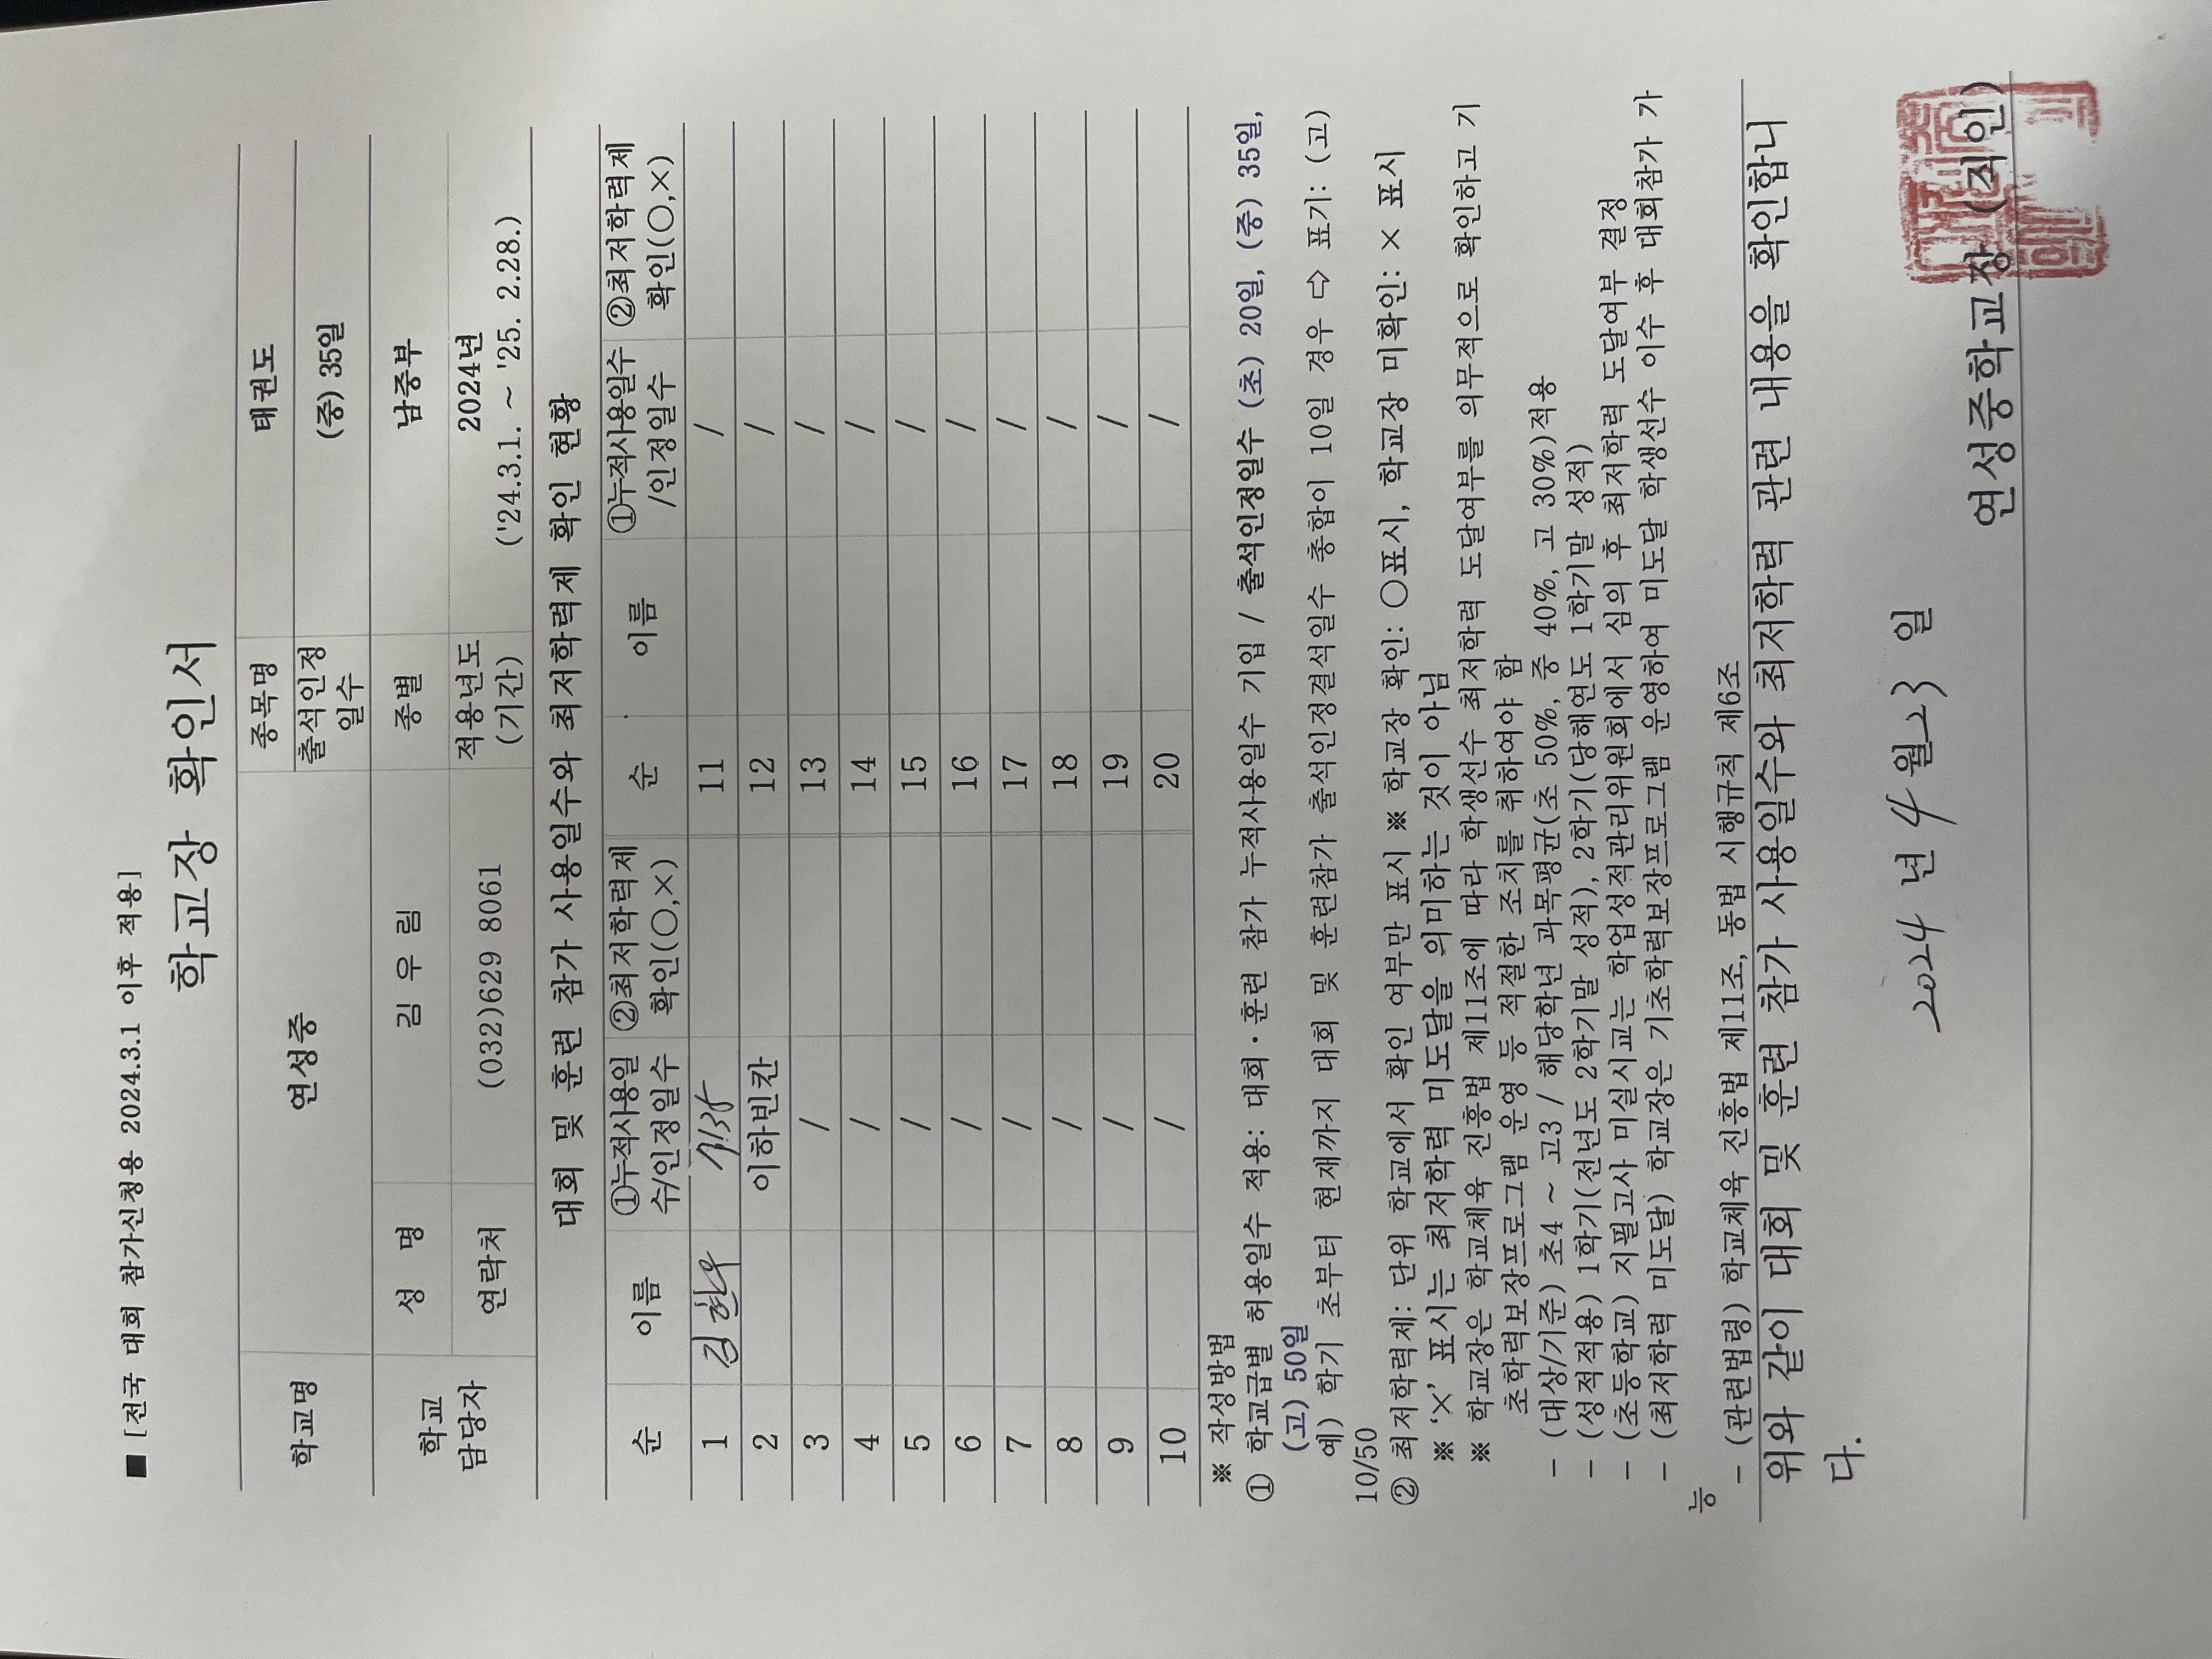 ■ [전국 대회 참가신청용 2024.3.1 이후 적용]
학교장 확인서
학교명 연성중 종목명 태권도
출석인정일수 (중) 35일
학교 담당자 성 명 김 우 림 종별 남중부
연락처 (032)629 8061 적용년도 (기간) 2024년 ('24.3.1. ~ '25. 2.28.)
대회 및 훈련 참가 사용일수와 최저학력제 확인 현황
순 이름 ①누적사용일수/인정일수 ②최저학력제 확인(○,×) 순 이름 ①누적사용일수/인정일수 ②최저학력제 확인(○,×)
1 김현우 /35 11 /
2 이하빈칸 12 /
3 / 13 /
4 / 14 /
5 / 15 /
6 / 16 /
7 / 17 /
8 / 18 /
9 / 19 /
10 / 20 /
※ 작성방법
① 학교급별 허용일수 적용: 대회·훈련 참가 누적사용일수 기입 / 출석인정일수 (초) 20일, (중) 35일,
(고) 50일
예) 학기 초부터 현재까지 대회 및 훈련참가 출석인정결석일수 총합이 10일 경우 ⇨ 표기: (고)
10/50
② 최저학력제: 단위 학교에서 확인 여부만 표시 ※ 학교장 확인: ○표시, 학교장 미확인: × 표시
※ '×' 표시는 최저학력 미도달을 의미하는 것이 아님
※ 학교장은 학교체육 진흥법 제11조에 따라 학생선수 최저학력 도달여부를 의무적으로 확인하고 기
초학력보장프로그램 운영 등 적절한 조치를 취하여야 함
- (대상/기준) 초4 ~ 고3 / 해당학년 과목평균(초 50%, 중 40%, 고 30%)적용
- (성적적용) 1학기(전년도 2학기말 성적), 2학기(당해연도 1학기말 성적)
- (초등학교) 지필고사 미실시교는 학업성적관리위원회에서 심의 후 최저학력 도달여부 결정
- (최저학력 미도달) 학교장은 기초학력보장프로그램 운영하여 미도달 학생선수 이수 후 대회참가 가
능
- (관련법령) 학교체육 진흥법 제11조, 동법 시행규칙 제6조
위와 같이 대회 및 훈련 참가 사용일수와 최저학력 관련 내용을 확인합니
다.
2024 년 4 월 23 일
연성중학교장 (직인)